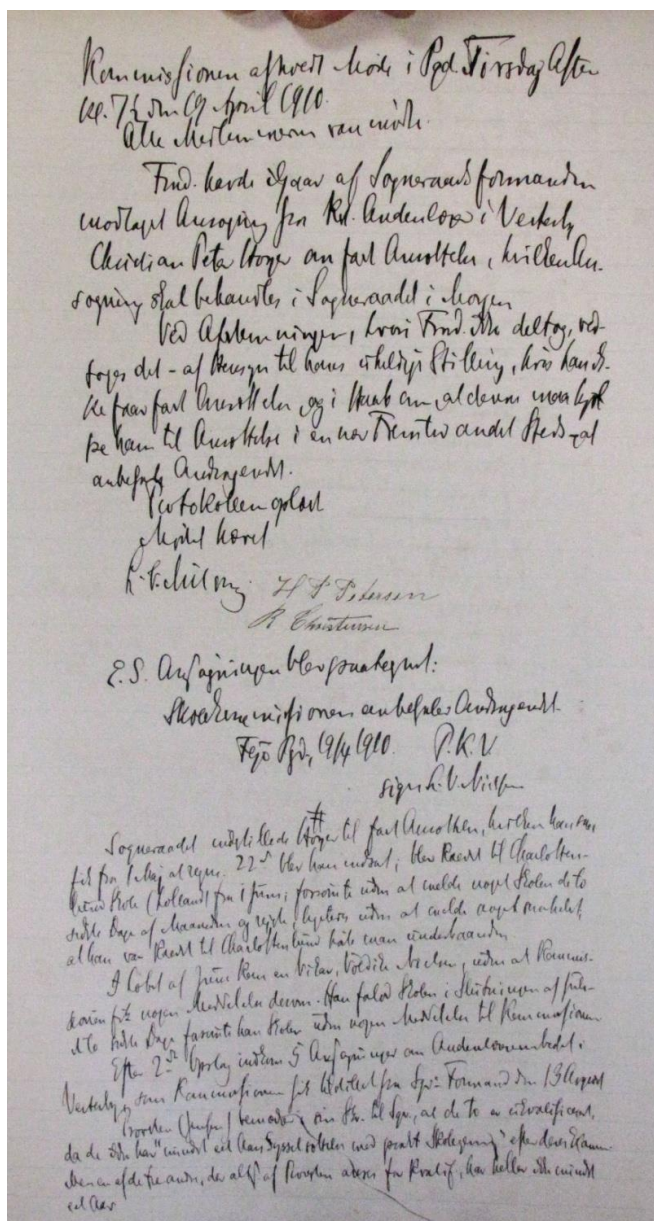 Kommissionen afholdt Møde i Pgd. Tirsdag Aften
Kl. 7½ den 19 April 1910.
Alle Medlemmerne var mødt.
Fmd. havde igaar af Sogneraadsformanden
modtaget Ansøgning fra Kst. Andenlærer i Vesterby
Christian Peter Høyer om fast Ansættelse, hvilken An-
søgning skal behandles i Sogneraadet i Morgen
Ved Afstemningen, hvori Fmd. ikke deltog, ved-
toges det - af Hensyn til hans uheldige Stilling, hvis han ik-
ke faar fast Ansættelse, og i Haab om, at denne maa hjæl
pe ham til Ansættelse i en nær Fremtid andet Steds - at
anbefale Andragendet.
Protokollen oplæst
Mødet hævet
L. V. Nielsen
H P Petersen
R Christensen
E. S. Ansøgningen blev paategnet:
Skolekommissionen anbefaler Andragendet.
Fejø Pgd, 19/4 1910. P. K. V
sign L. V. Nielsen
Sogneraadet indstillede Høyer til fast Ansættelse, hvilken han
fik fra 1 Maj at regne. 22de blev han indsat; blev Kaldt til Charlotten-
lund Skole (Lolland) fra 1 Juni; forsømte uden at melde noget Skolen de to
sidste Dage af Maaneden og rejste uden at melde noget
at han var Kaldt til Charlottenlund
I Løbet af Juni Kom en Vikar, Nielsen, uden at Kommis-
sionen fik nogen Meddelelse derom. Han Skolen i Slutningen af Juli
de to sidste Dage forsømte han Skolen uden nogen Meddelelse til Kommissionen
Efter 2det Opslag indkom 5 Ansøgninger om Andenlærerembedet i
Vesterby, som Kommissionen fik tilstillet fra Spr. Formand den 13 August
Provsten (Jensen) Skr. til Spr., at de to er ukvalificeret,
da de ikke har "mindst eet Aars Sysselsættelse med Skolegerning" efter deres Examen
Men en af de tre andre, der altsaa af Provsten for Kvalif., har heller ikke mindst
eet Aar